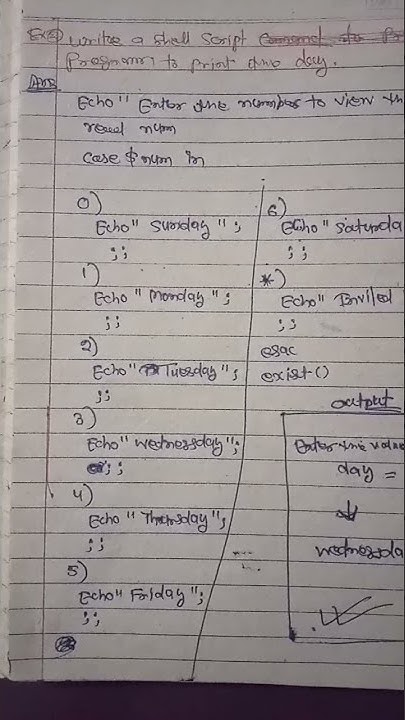 Ex5) write a shell script
Program to print the day.
Ans
Echo " Enter the number to view th
read num
case $ num in
0)
Echo" Sunday ";
;;
1)
Echo " Monday ";
;;
2)
Echo" Tuesday";
;;
3)
Echo" Wednessday";
;;
4)
Echo " Thursday";
;;
5)
Echo" Friday";
;;
6)
Echo" Saturda
;;
*)
Echo" Inviled
;;
esac
exist()
output
Enter the value
day =
↓
wednessda